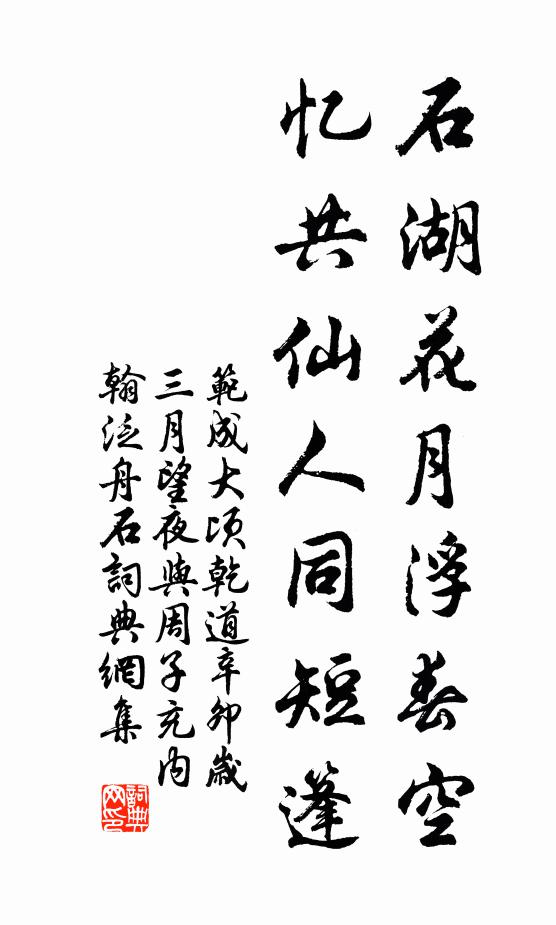 石湖花月浮春空
忆共仙人同短篷
範成大頃乾道辛卯歲
三月望夜與周子充内
翰泛舟石詞典網集
詞典网印